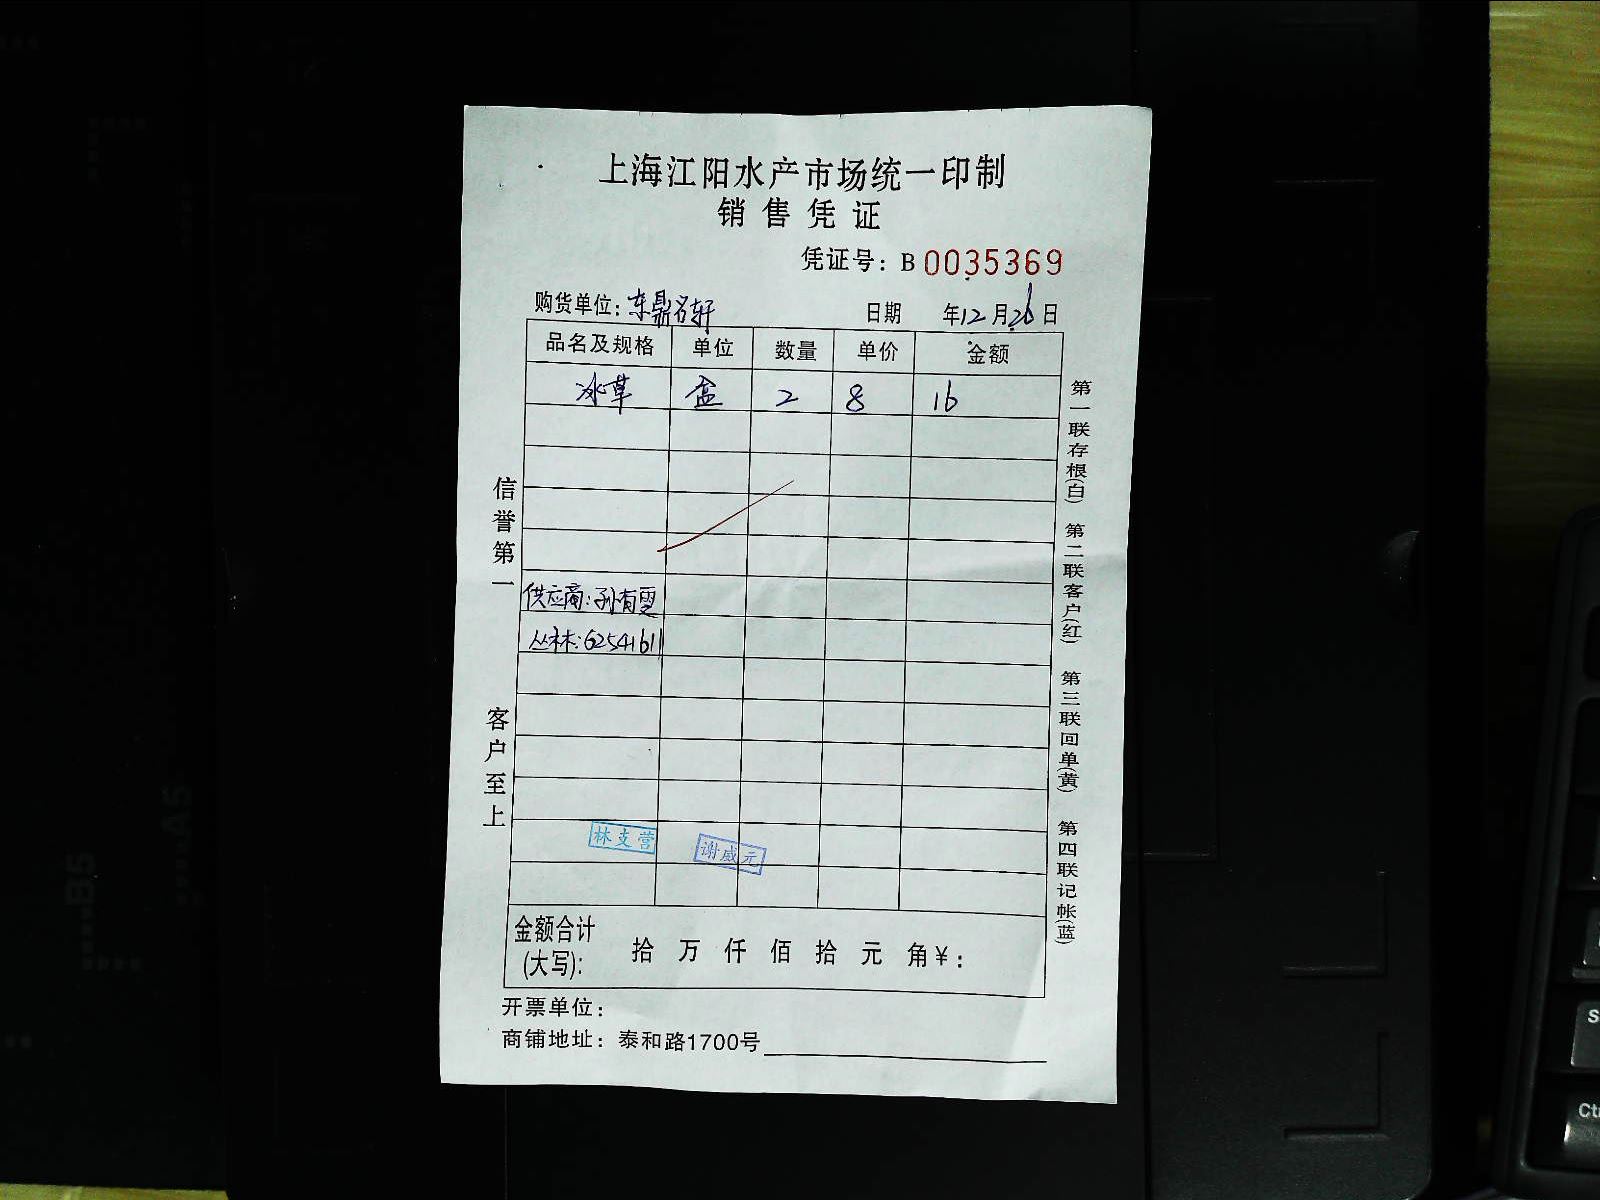 上海江阳水产市场统一印制
销售凭证
凭证号：B 0035369
购货单位：东鼎名轩 日期 年12月26日
品名及规格 单位 数量 单价 金额
冰草 盒 2 8 16
供应商：孙有雯
丛林：62541611
林支营 谢威元
金额合计(大写)： 拾 万 仟 佰 拾 元 角 ¥：
开票单位：
商铺地址：泰和路1700号
信誉第一
客户至上
第一联存根(白) 第二联客户(红) 第三联回单(黄) 第四联记帐(蓝)